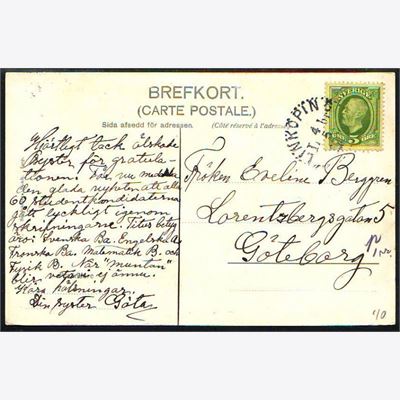 BREFKORT.
(CARTE POSTALE.)
Sida afsedd för adressen. (Côté réservé à l'adres
Hjärtligt tack älskade
Syster för gratula-
tionen! Får nu meddela
den glada nyheten att alla
60 studentkandidaterna
gått lyckligt igenom
skrifningarne. Titus betyg
äro: Svenska Ba. Engelska A.
Franska Ba. Matematik B. och
Fysik B. När "muntan"
blir veta vi ej ännu.
Kära hälsningar.
Din syster Göta
LINKÖPING
SVERIGE
5 ÖRE
Fröken Eveline Berggren
Lorentzbergsgatan 5
Göteborg